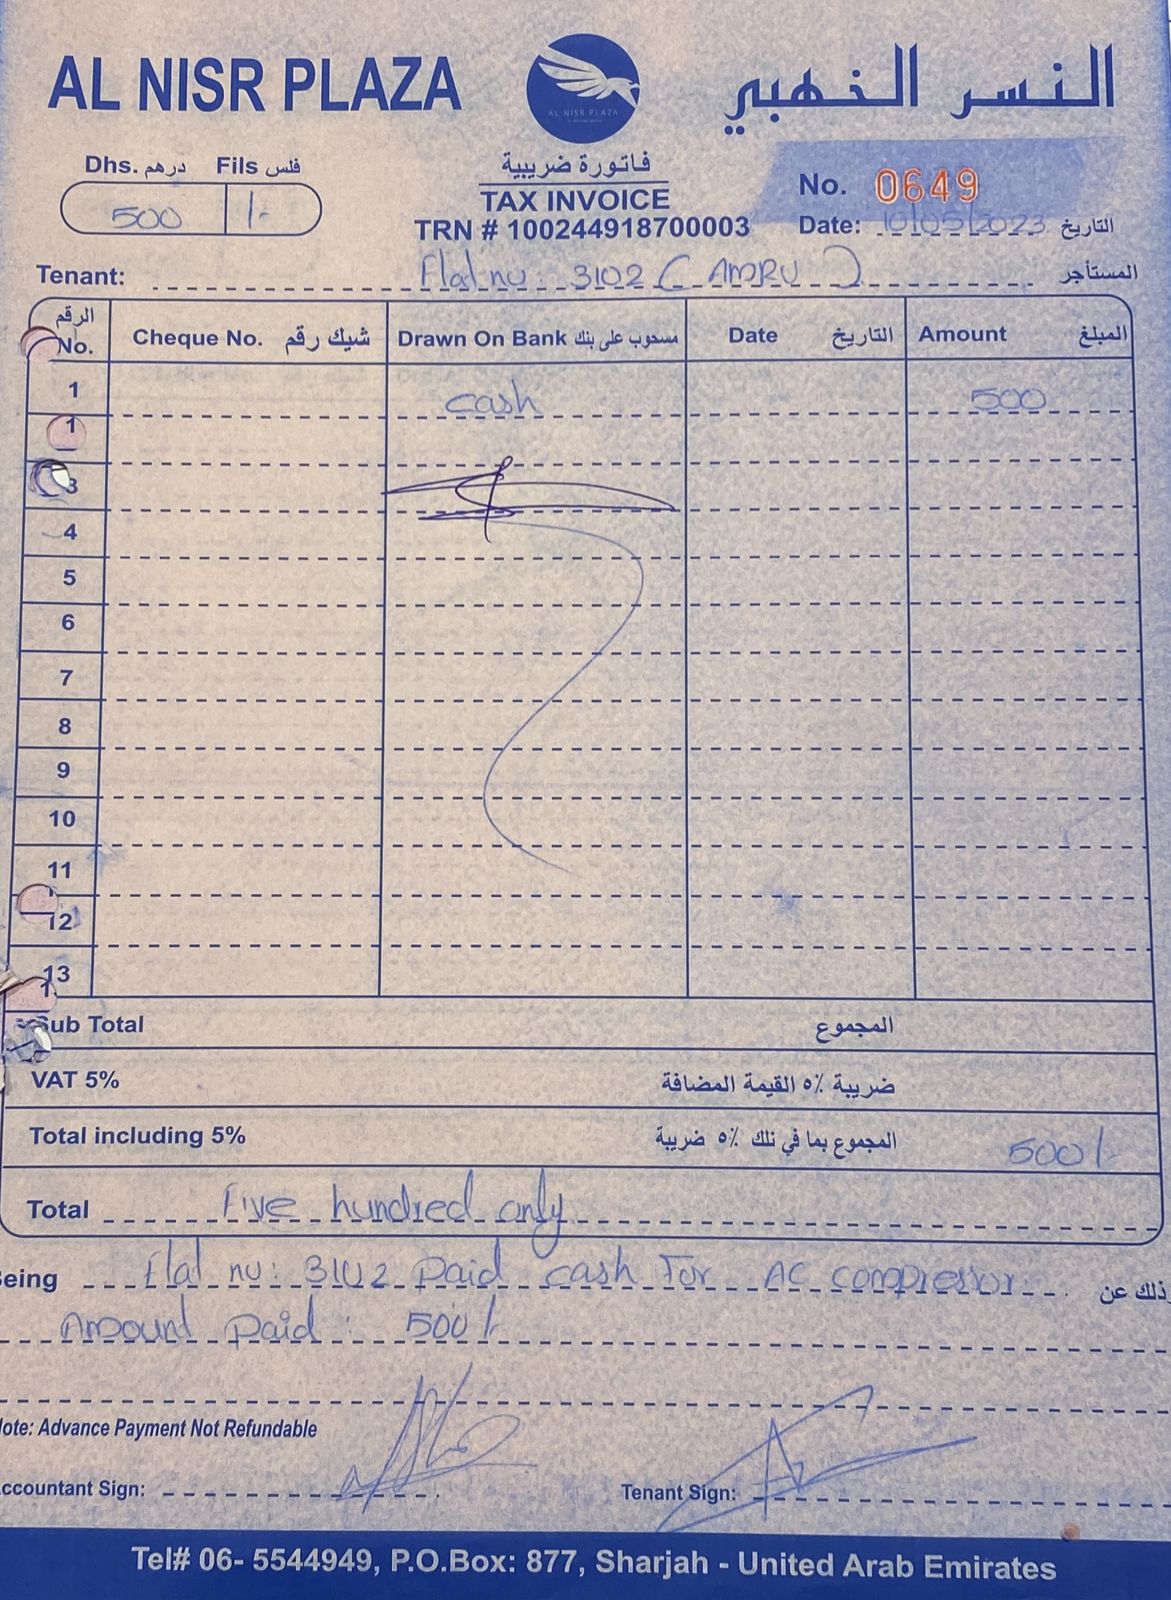 AL NISR PLAZA
AL NISR PLAZA
النسر الذهبي
Dhs. درهم Fils فلس
500 /-
فاتورة ضريبية
TAX INVOICE
TRN # 100244918700003
No. 0649
Date: 10/05/2023 التاريخ
Tenant: Flat no: 3102 ( AMRU ) المستأجر
الرقم No. Cheque No. شيك رقم Drawn On Bank مسحوب على بنك Date التاريخ Amount المبلغ
1 cash 500
1
3
4
5
6
7
8
9
10
11
12
13
Sub Total المجموع
VAT 5% ضريبة ٥٪ القيمة المضافة
Total including 5% المجموع بما في تلك ٥٪ ضريبة 500/-
Total Five hundred only
Being Flat no: 3102 Paid cash For AC compressor ذلك عن
Amount Paid : 500/-
Note: Advance Payment Not Refundable
Accountant Sign: Tenant Sign:
Tel# 06- 5544949, P.O.Box: 877, Sharjah - United Arab Emirates